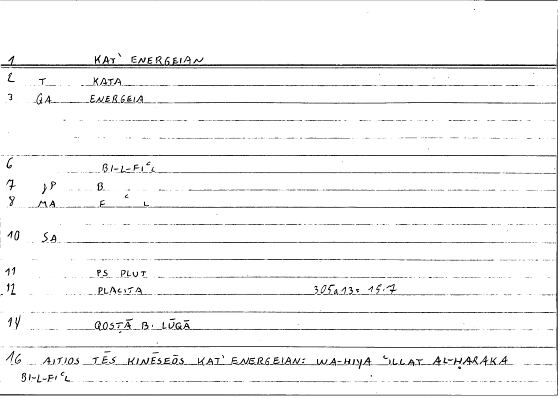 1 KAT' ENERGEIAN
2 T KATA
3 GA ENERGEIA
6 BI-L-FIʿL
7 JP B
8 MA F ʿ L
10 SA
11 PS PLUT
12 PLACITA 305a13= 15.7
14 QOSṬĀ B. LŪQĀ
16 AITIOS TĒS KINĒSEŌS KAT' ENERGEIAN: WA-HIYA ʿILLAT AL-ḤARAKA
BI-L-FIʿL